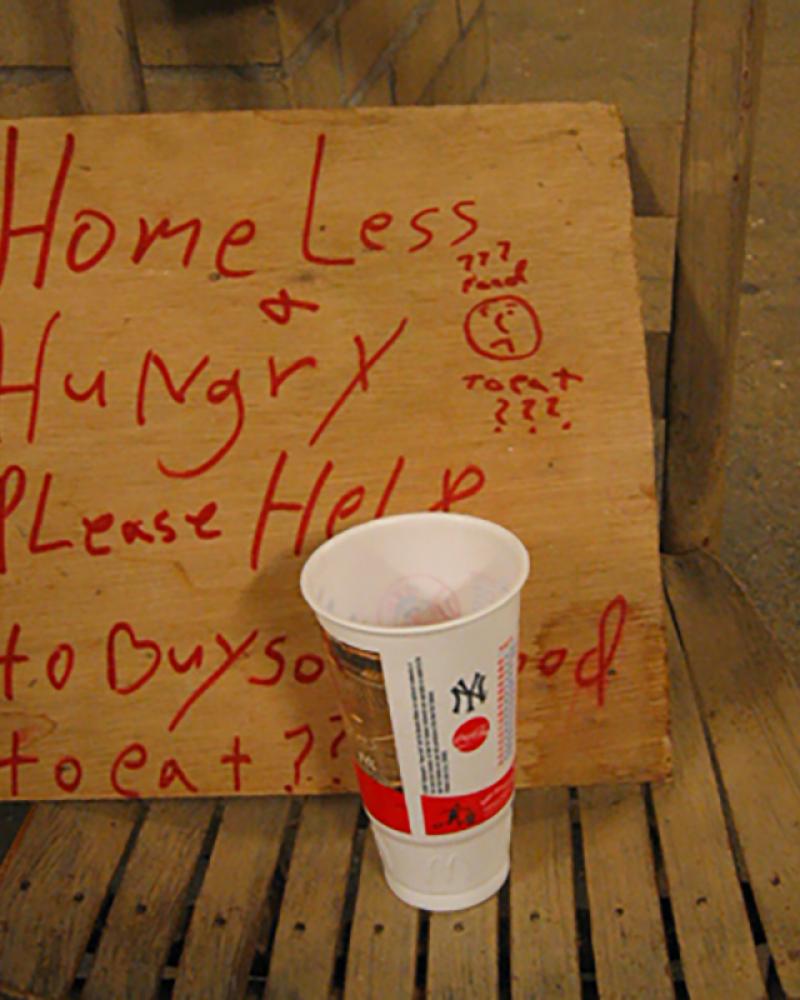 HomeLess
&
HuNgrY
PLease HeLP
to Buy so ood
to eat ??
???
Food
To eat
???
NY
Coca-Cola